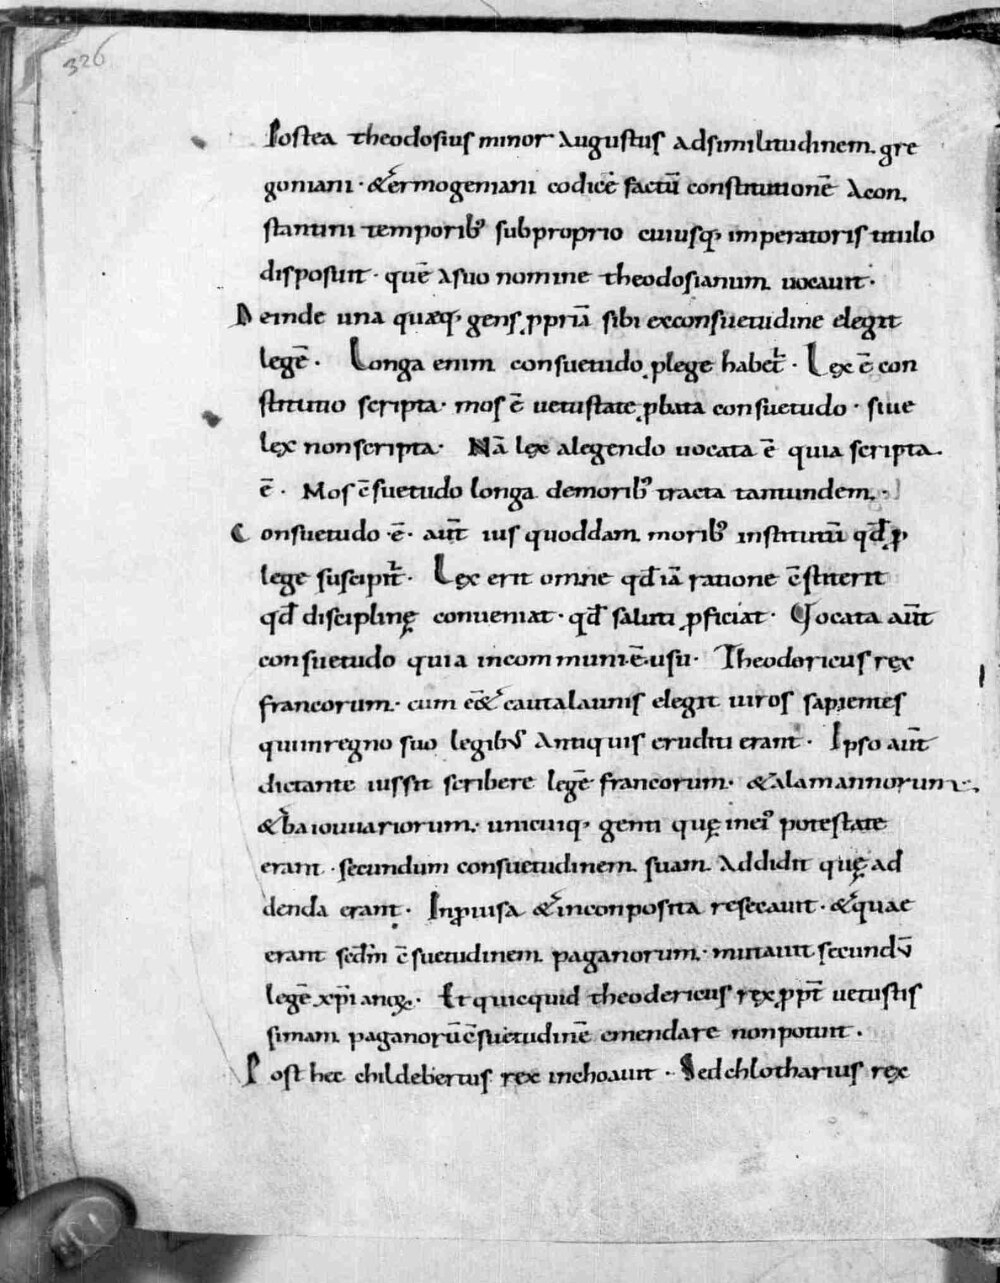 326
Postea theodosius minor Augustus adsimilitudinem gre
goriani · &ermogeniani codicē factū constitutionē Acon
stantini temporib; subproprio cuiusq; imperatoris titulo
disposuit · quē Asuo nomine theodosianum uocauit ·
Deinde una quæq; gens ꝓpriā sibi exconsuetudine elegit
legē · Longa enim consuetudo ꝓlege habet̄ · Lex ē con
stitutio scripta · mos ē uetustate ꝓbata consuetudo · siue
lex nonscripta · Nā lex alegendo uocata ē quia scripta
ē · Mos c̄suetudo longa demorib; tracta tantundem ·
Consuetudo · ē · aut̄ ius quoddam morib; institutū qđ ꝓ
lege suscipit̄ · Lex erit omne qđ iā ratione c̄stiterit
qđ disciplinę conueniat · qđ saluti ꝓficiat · Uocata aut̄
consuetudo quia incommuni·ē·usu · Theodoricus rex
francorum · cum eēt̄ cautalaunis elegit uiros sapientes
quiinregno suo legibus Antiquis eruditi erant · Ipso aut̄
dictante iussit scribere legē francorum · &alamannorum ·
&baiouuariorum · unicuiq; genti quę inei' potestate
erant · secundum consuetudinem suam Addidit quę ad
denda erant · Inꝓuisa &inconposita resecauit · &quae
erant secđm c̄suetudinem paganorum · mutauit secundū
legē xp̄ianoꝝ · Et quicquid theodericus rex ꝓpt̄ uetustis
simam paganorū c̄suetudinē emendare nonpotuit ·
Post hec childebertus rex inchoauit · Sedchlotharius rex